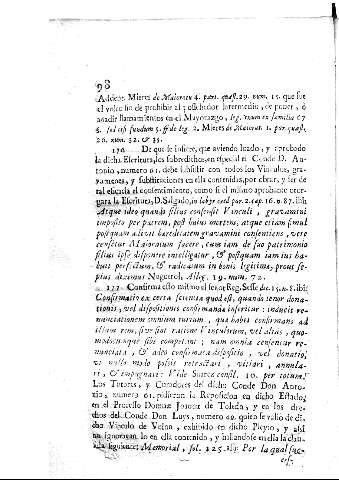 98
Addent. Mieres de Maioratu 4. part. quæst. 29. num. 15. que fue
el voler sin de prohibir al poseedor intermedio, de poner, ò
añadir llamamientos en el Mayorazgo, leg. unum ex familia 67
§. sed si fundum 5. ff. de leg. 2. Mieres de Maiorat. 1. part. quæst.
20. num. 32. & 35.
176 De que se infiere, que aviendo leado, y aprobado
la dicha Escritura, los sobredichos, en especial el Conde D. An-
tonio, numero 61. debe subsistir con todos los Vinculos, grav-
vamenes, y substituciones en ella contenidas, por obrar, y ser de
tal eficacia el consentimiento, como si el mismo aprobante otor-
gara la Escritura, D. Salgado, in labyr. cred. par. 2. cap. 16. n. 87. ibi:
Atque ideo quando filius consensit Vinculi, gravamini
imposito per patrem, post huius mortem, atque etiam simul
postquam adivit hæreditatem gravamini consentiens, vere
censetur Maioratum facere, cum iam de suo patrimonio
filius ipse disponere intelligatur, & postquam iam ius ha-
buit perfectum, & radicatum in bonis legitimæ, prout sæ-
pius diximus Noguerol, Alleg. 19. num. 72.
177 Confirma esto mismo el señor Reg. Sesse dec. 15. n. 8. ibi:
Confirmatio ex certa scientia quod est, quando tenor dona-
tionis, vel dispositionis confirmandæ inseritur: inducit re-
nunciationem omnium iurium, quæ habet confirmans ad
illam rem, sive sint ratione Vinculorum, vel alias, quo-
modocunque sibi competant; nam omnia censentur re-
nunciata, & adeo confirmata dispositio, vel donatio,
ut nullo modo possit retractari, vitiari, annula-
ri, & impugnari: Vide Suarez consil. 10. per totum.
Los Tutores, y Curadores del dicho Conde Don Anto-
nio, numero 61. pidieron la Reposicion en dicho Estado,
en el Processo Domnæ Joannæ de Toledo, y en los dre-
chos del Conde Don Luys, numero 49. quien se valio de di-
cho Vinculo de Veinn, exhibido en dicho Pleyto, y assi
no ignoravan lo en ella contenido, y hallandose en ella la clau-
sula siguiente: Memorial, fol. 225. ibi: Por la qual suc-
ces-